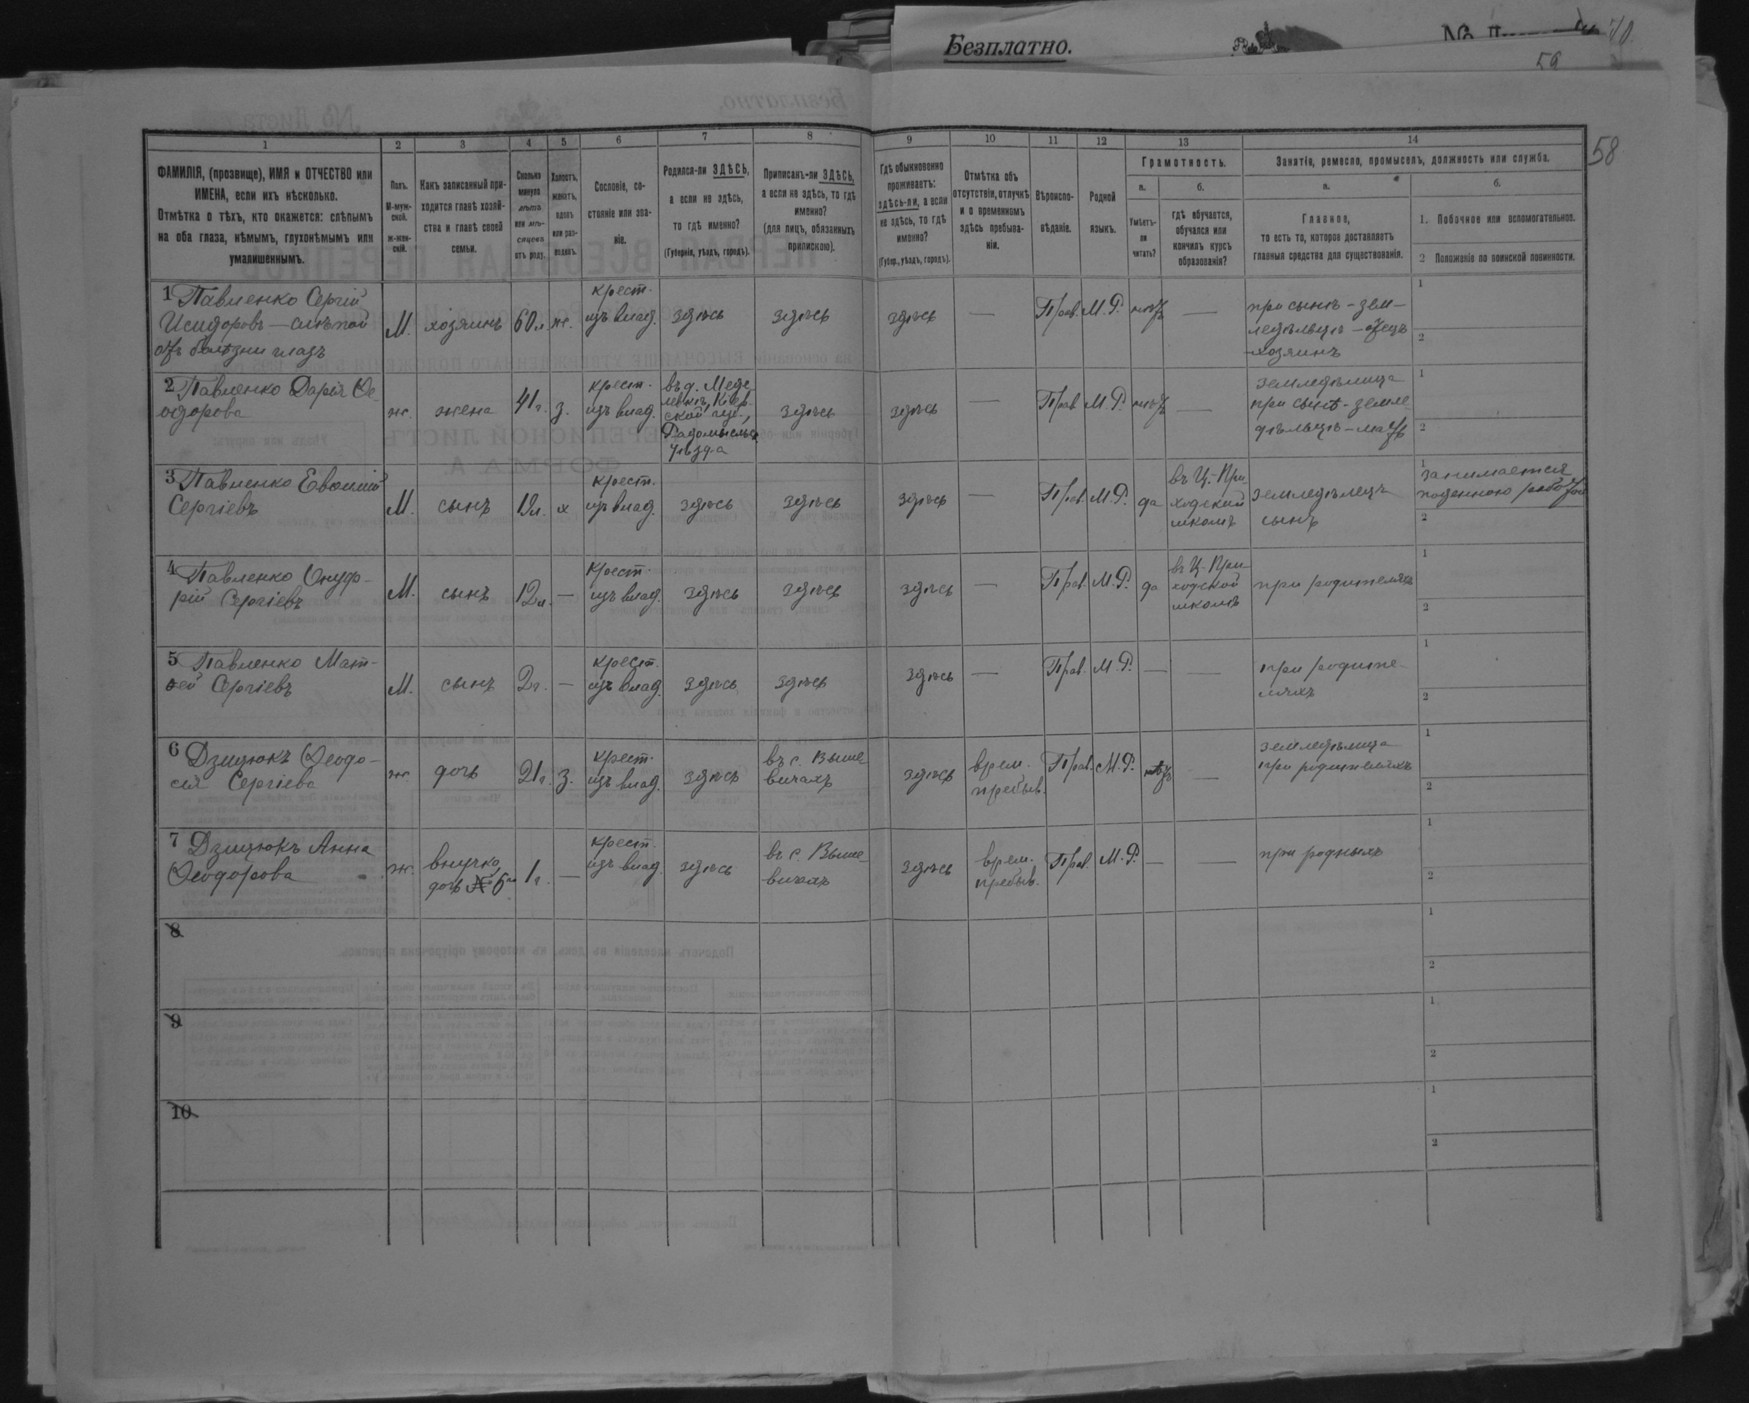 Безплатно.
58
1 2 3 4 5 6 7 8 9 10 11 12 13 14
ФАМИЛІЯ, (прозвище), ИМЯ и ОТЧЕСТВО или
ИМЕНА, если ихъ нѣсколько.
Отмѣтка о тѣхъ, кто окажется: слѣпымъ
на оба глаза, нѣмымъ, глухонѣмымъ или
умалишеннымъ.
Полъ.
М-муж-
ской.
ж-жен-
скій.
Какъ записанный при-
ходится главѣ хозяй-
ства и главѣ своей
семьи.
Сколько
минуло
лѣтъ
или мѣ-
сяцевъ
отъ роду.
Холостъ,
женатъ,
вдовъ
или раз-
веденъ.
Сословіе, со-
стояніе или зва-
ніе.
Родился-ли ЗДѢСЬ,
а если не здѣсь,
то гдѣ именно?
(Губернія, уѣздъ, городъ).
Приписанъ-ли ЗДѢСЬ,
а если не здѣсь, то гдѣ
именно?
(для лицъ, обязанныхъ
припискою).
Гдѣ обыкновенно
проживаетъ:
здѣсь-ли, а если
не здѣсь, то гдѣ
именно?
(Губер., уѣздъ, городъ).
Отмѣтка объ
отсутствіи, отлучкѣ
и о временномъ
здѣсь пребыва-
ніи.
Вѣроиспо-
вѣданіе.
Родной
языкъ.
Грамотность.
а.
Умѣетъ-
ли
читать?
б.
гдѣ обучается,
обучался или
кончилъ курсъ
образованія?
Занятіе, ремесло, промыселъ, должность или служба.
а.
Главное,
то есть то, которое доставляетъ
главныя средства для существованія.
б.
1. Побочное или вспомогательное.
2 Положеніе по воинской повинности.
1 Павленко Сергій
Исидоровъ — слѣпой
отъ болѣзни глазъ
М. хозяинъ 60 л. ж.
крест.
изъ влад.
здѣсь здѣсь здѣсь — Прав. М.Р. нѣтъ —
при сынѣ - зем-
ледѣльцѣ - отецъ
хозяинъ
1
2
2 Павленко Дарія Ѳе
одорова
ж. жена 41 г. з.
крест.
изъ влад.
въ д. Меде
левкѣ, Кіев
ской губ.,
Радомысльс.
уѣзда
здѣсь здѣсь — Прав. М.Р. нѣтъ —
земледѣлица
при сынѣ - земле
дѣльцѣ - мать
1
2
3 Павленко Евѳимій
Сергіевъ
М. сынъ х
крест.
изъ влад.
здѣсь здѣсь здѣсь — Прав. М.Р. да
въ Ц.-При
ходской
школѣ
земледѣлецъ
сынъ
1
занимается
поденною работой
2
4 Павленко Онуф-
рій Сергіевъ
М. сынъ 12 л. —
крест.
изъ влад.
здѣсь здѣсь здѣсь — Прав. М.Р. да
въ Ц.-При
ходской
школѣ
при родителяхъ
1
2
5 Павленко Мат-
ѳей Сергіевъ
М. сынъ 2 г. —
крест.
изъ влад.
здѣсь здѣсь здѣсь — Прав. М.Р. — —
при родите-
ляхъ
1
2
6 Дзицюкъ Ѳеодо-
сія Сергіева
ж. дочь 21 г. з.
крест.
изъ влад.
здѣсь
въ с. Выше
вичахъ
здѣсь
врем.
пребыв.
Прав. М.Р. нѣтъ —
земледѣлица
при родителяхъ
1
2
7 Дзицюкъ Анна
Ѳеодорова
ж.
внучка
дочь № 6го
1 г. —
крест.
изъ влад.
здѣсь
въ с. Выше
вичахъ
здѣсь
врем.
пребыв.
Прав. М.Р. — —
при родныхъ
1
2
8
1
2
9
1
2
10
1
2